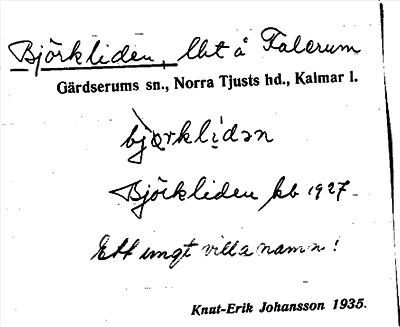 Björkliden, lht å Falerum
Gärdserums sn., Norra Tjusts hd., Kalmar l.
bjørklidən
Björkliden kb 1927
Ett ungt villanamn!
Knut-Erik Johansson 1935.